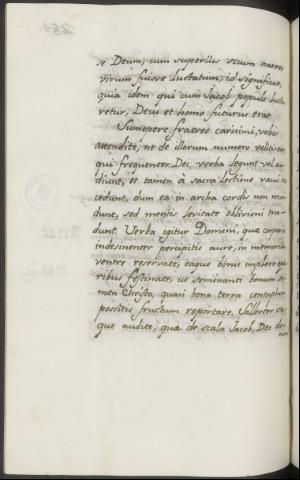 se Deum, cum superius secum narret
virum fuisse luctatum; id significat,
quia idem qui cum Jacob populo lucta
retur, Deus et homo futurus erat.
Summopere, fratres carissimi, vobis
attendite, ne de illorum numero velitis esse
qui frequenter Dei verba legunt vel au
diunt, et tamen a sacra lectione vacui re
cedunt, dum ea in archa cordis non recon
dunt, sed mentis levitate oblivioni tra
dunt. Verba igitur Domini, quæ corporis
indesinenter percipitis aure, in memoriæ
ventre reservate, eaque bonis implere ope
ribus festinate, ut seminanti bonum se
men Christo, quasi bona terra centuplum
possitis fructum reportare. Sollerter ita
que audite, quia de scala Jacob, Deo do